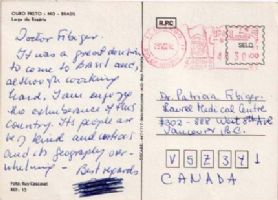 OURO PRETO - MG - BRASIL
Largo do Rosário
Doctor
It was a great decision
to come to Brasil and,
although working
hard, I am enjoying
the exhuberance of this
country. Its people are
very kind and
and its geography over-
whelming - Best regards
R.P.C.
SELO
Dr Patricia
Laurel Medical Centre
#302 - 888 West 8th Ave
Vancouver, B.C.
V5Z3Y1
CANADA